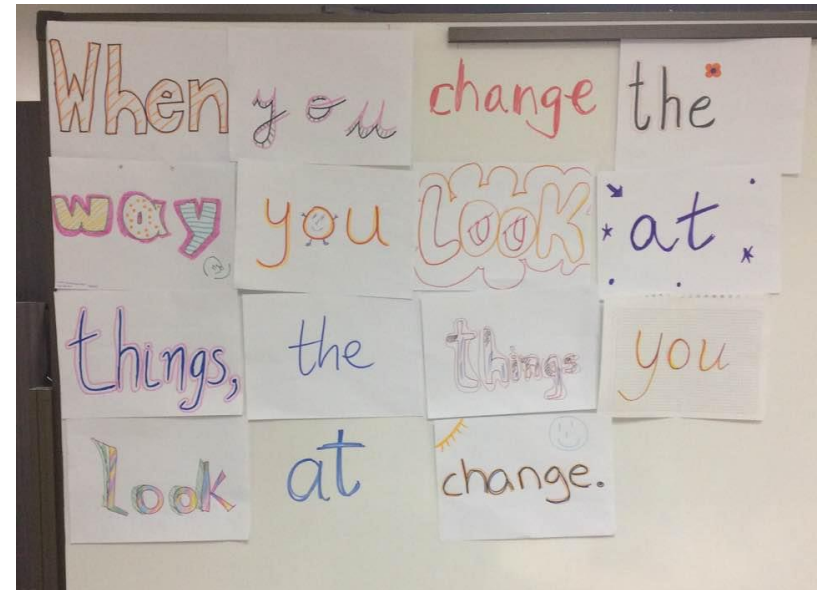 When you change the
way you LOOK at
things, the things you
look at change.